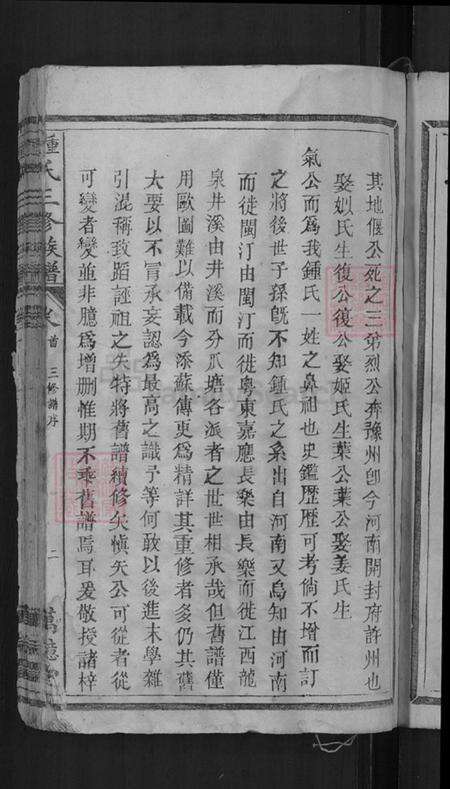 其地偃公死之三弟烈公奔豫州卽今河南開封府許州也
娶姒氏生復公復公娶姬氏生葉公葉公娶姜氏生
氣公而爲我鍾氏一姓之鼻祖也史鑑歷歷可考倘不增而訂
之將後世子孫旣不知鍾氏之系出自河南又烏知由河南
而徙閩汀由閩汀而徙粵東嘉應長樂由長樂而徙江西龍
泉井溪由井溪而分爪塘各派者之世世相承哉但舊譜僅
用歐圖難以備載今添蘇傳更爲精詳其重修者多仍其舊
大要以不冐承妄認爲最高之識予等何敢以後進末學雜
引混稱致蹈誣祖之失特將舊譜續修矢愼矢公可從者從
可變者變並非臆爲增删惟期不乖舊譜焉耳爰敬授諸梓
鍾氏三修族譜
卷首 三修譜序
二
萬億